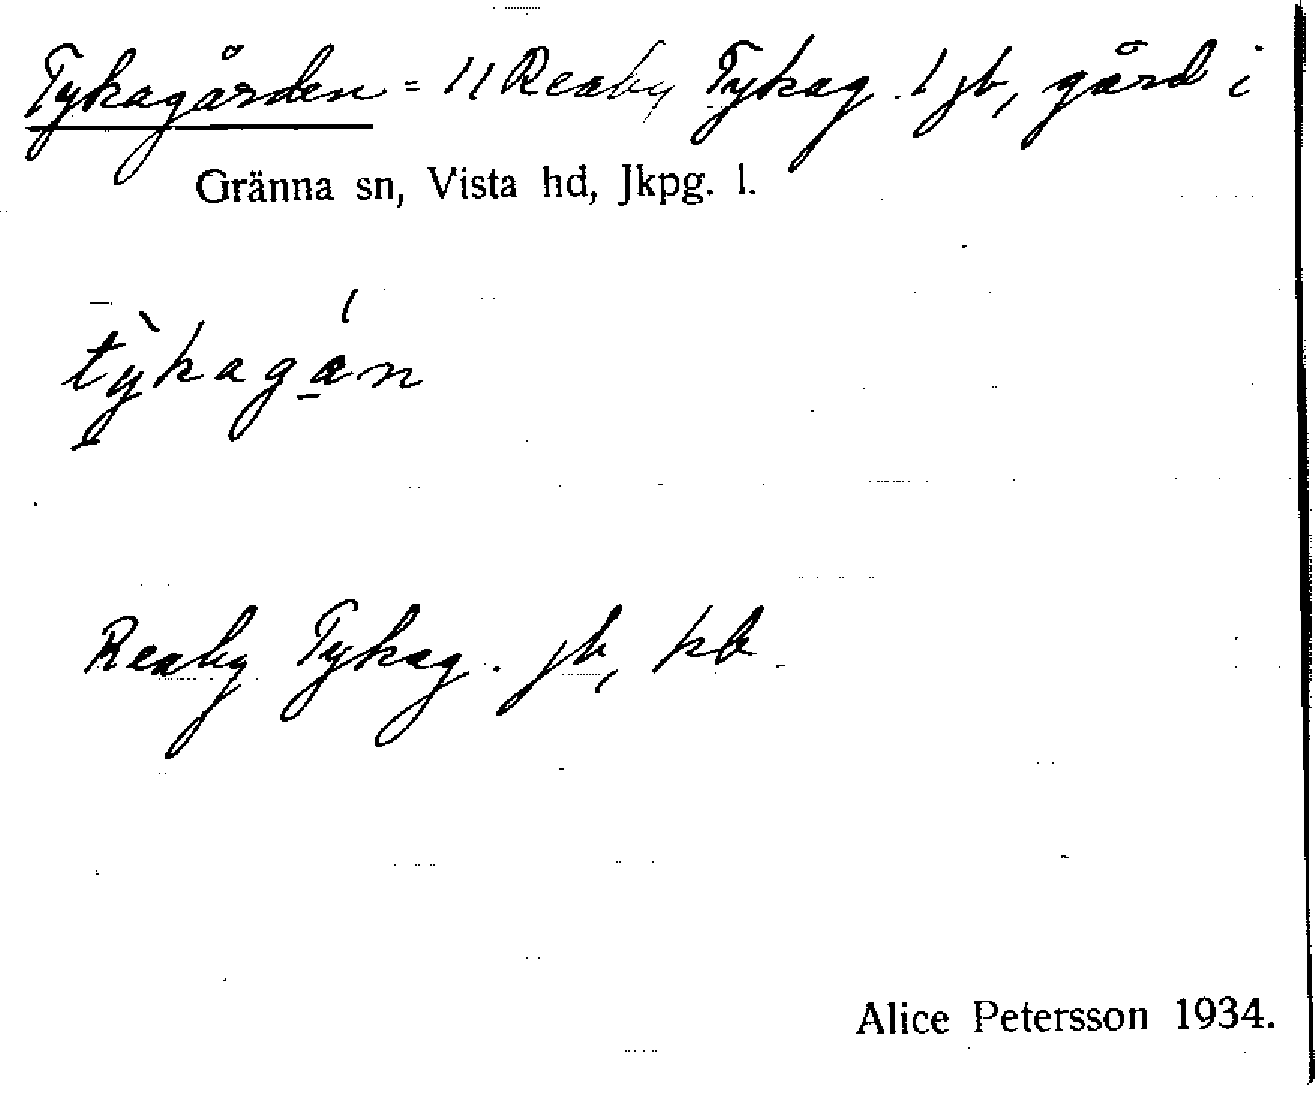 Tykagården = 11 Reaby Tykag. 1 jb, gård i
Gränna sn, Vista hd, Jkpg. l.
tỳkagán
Reaby Tykag. jb, kb
Alice Petersson 1934.